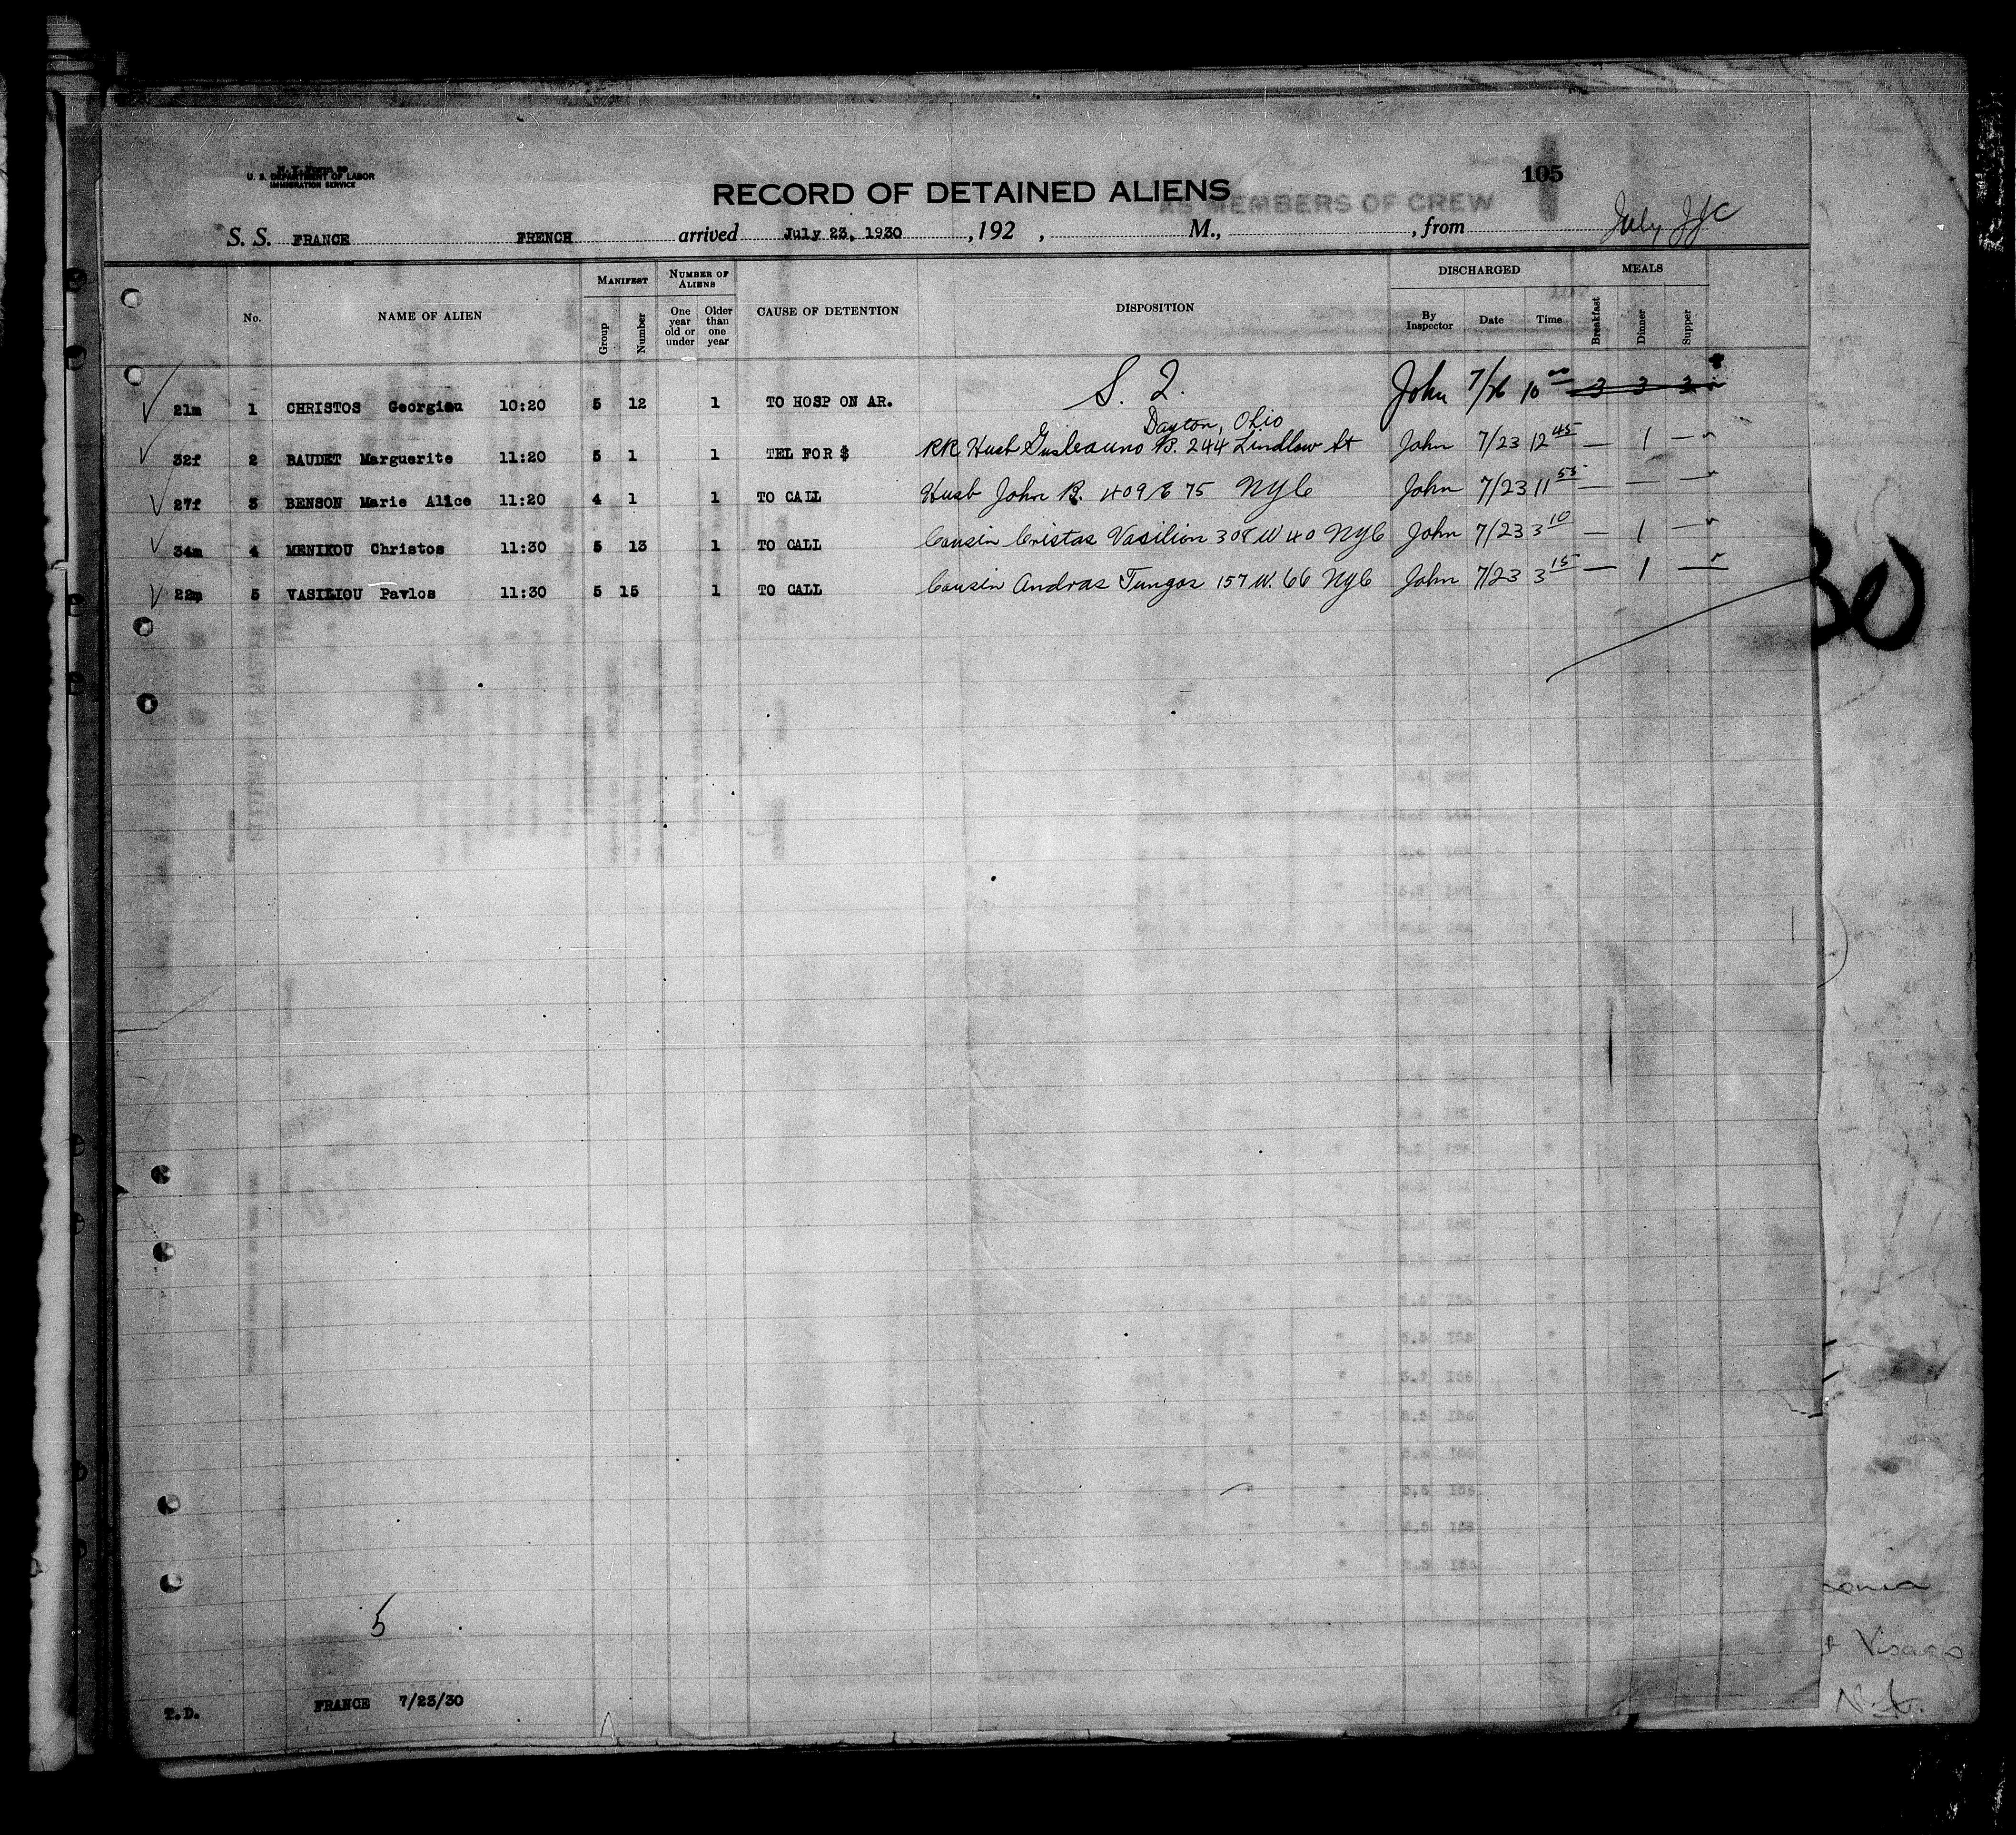 U. S. DEPARTMENT OF LABOR
IMMIGRATION SERVICE
105
RECORD OF DETAINED ALIENS
AS MEMBERS OF CREW
S. S. FRANCE FRENCH arrived July 23, 1930 , 192 , M., , from July
No. NAME OF ALIEN MANIFEST Group Number NUMBER OF ALIENS One year old or under Older than one year CAUSE OF DETENTION DISPOSITION DISCHARGED By Inspector Date Time MEALS Breakfast Dinner Supper
21m 1 CHRISTOS Georgiou 10:20 5 12 1 TO HOSP ON AR. S. I. John 7/26 10 00 3 3 3
Dayton, Ohio
32f 2 BAUDET Marguerite 11:20 5 1 1 TEL FOR $ RR Husb B. 244 Lindlow St John 7/23 12 45 — 1 —
27f 3 BENSON Marie Alice 11:20 4 1 1 TO CALL Husb John B. 409 E 75 NYC John 7/23 11 55 — — —
34m 4 MENIKOU Christos 11:30 5 13 1 TO CALL Cousin Cristas Vasilion 308 W 40 NYC John 7/23 3 10 — 1 —
22m 5 VASILIOU Pavlos 11:30 5 15 1 TO CALL Cousin Andras Tungos 157 W. 66 NYC John 7/23 3 15 — 1 —
5
T.D. FRANCE 7/23/30